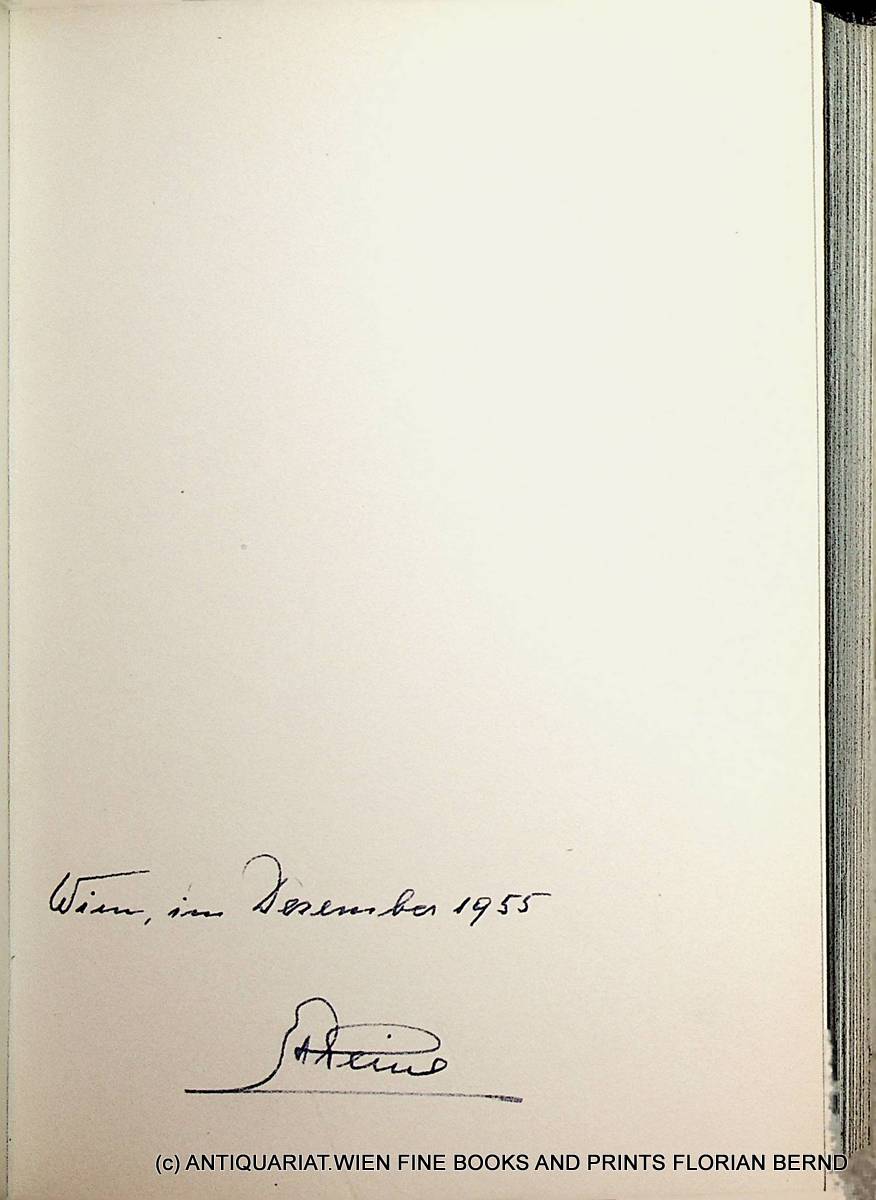 Wien, im Dezember 1955
(c) ANTIQUARIAT.WIEN FINE BOOKS AND PRINTS FLORIAN BERND